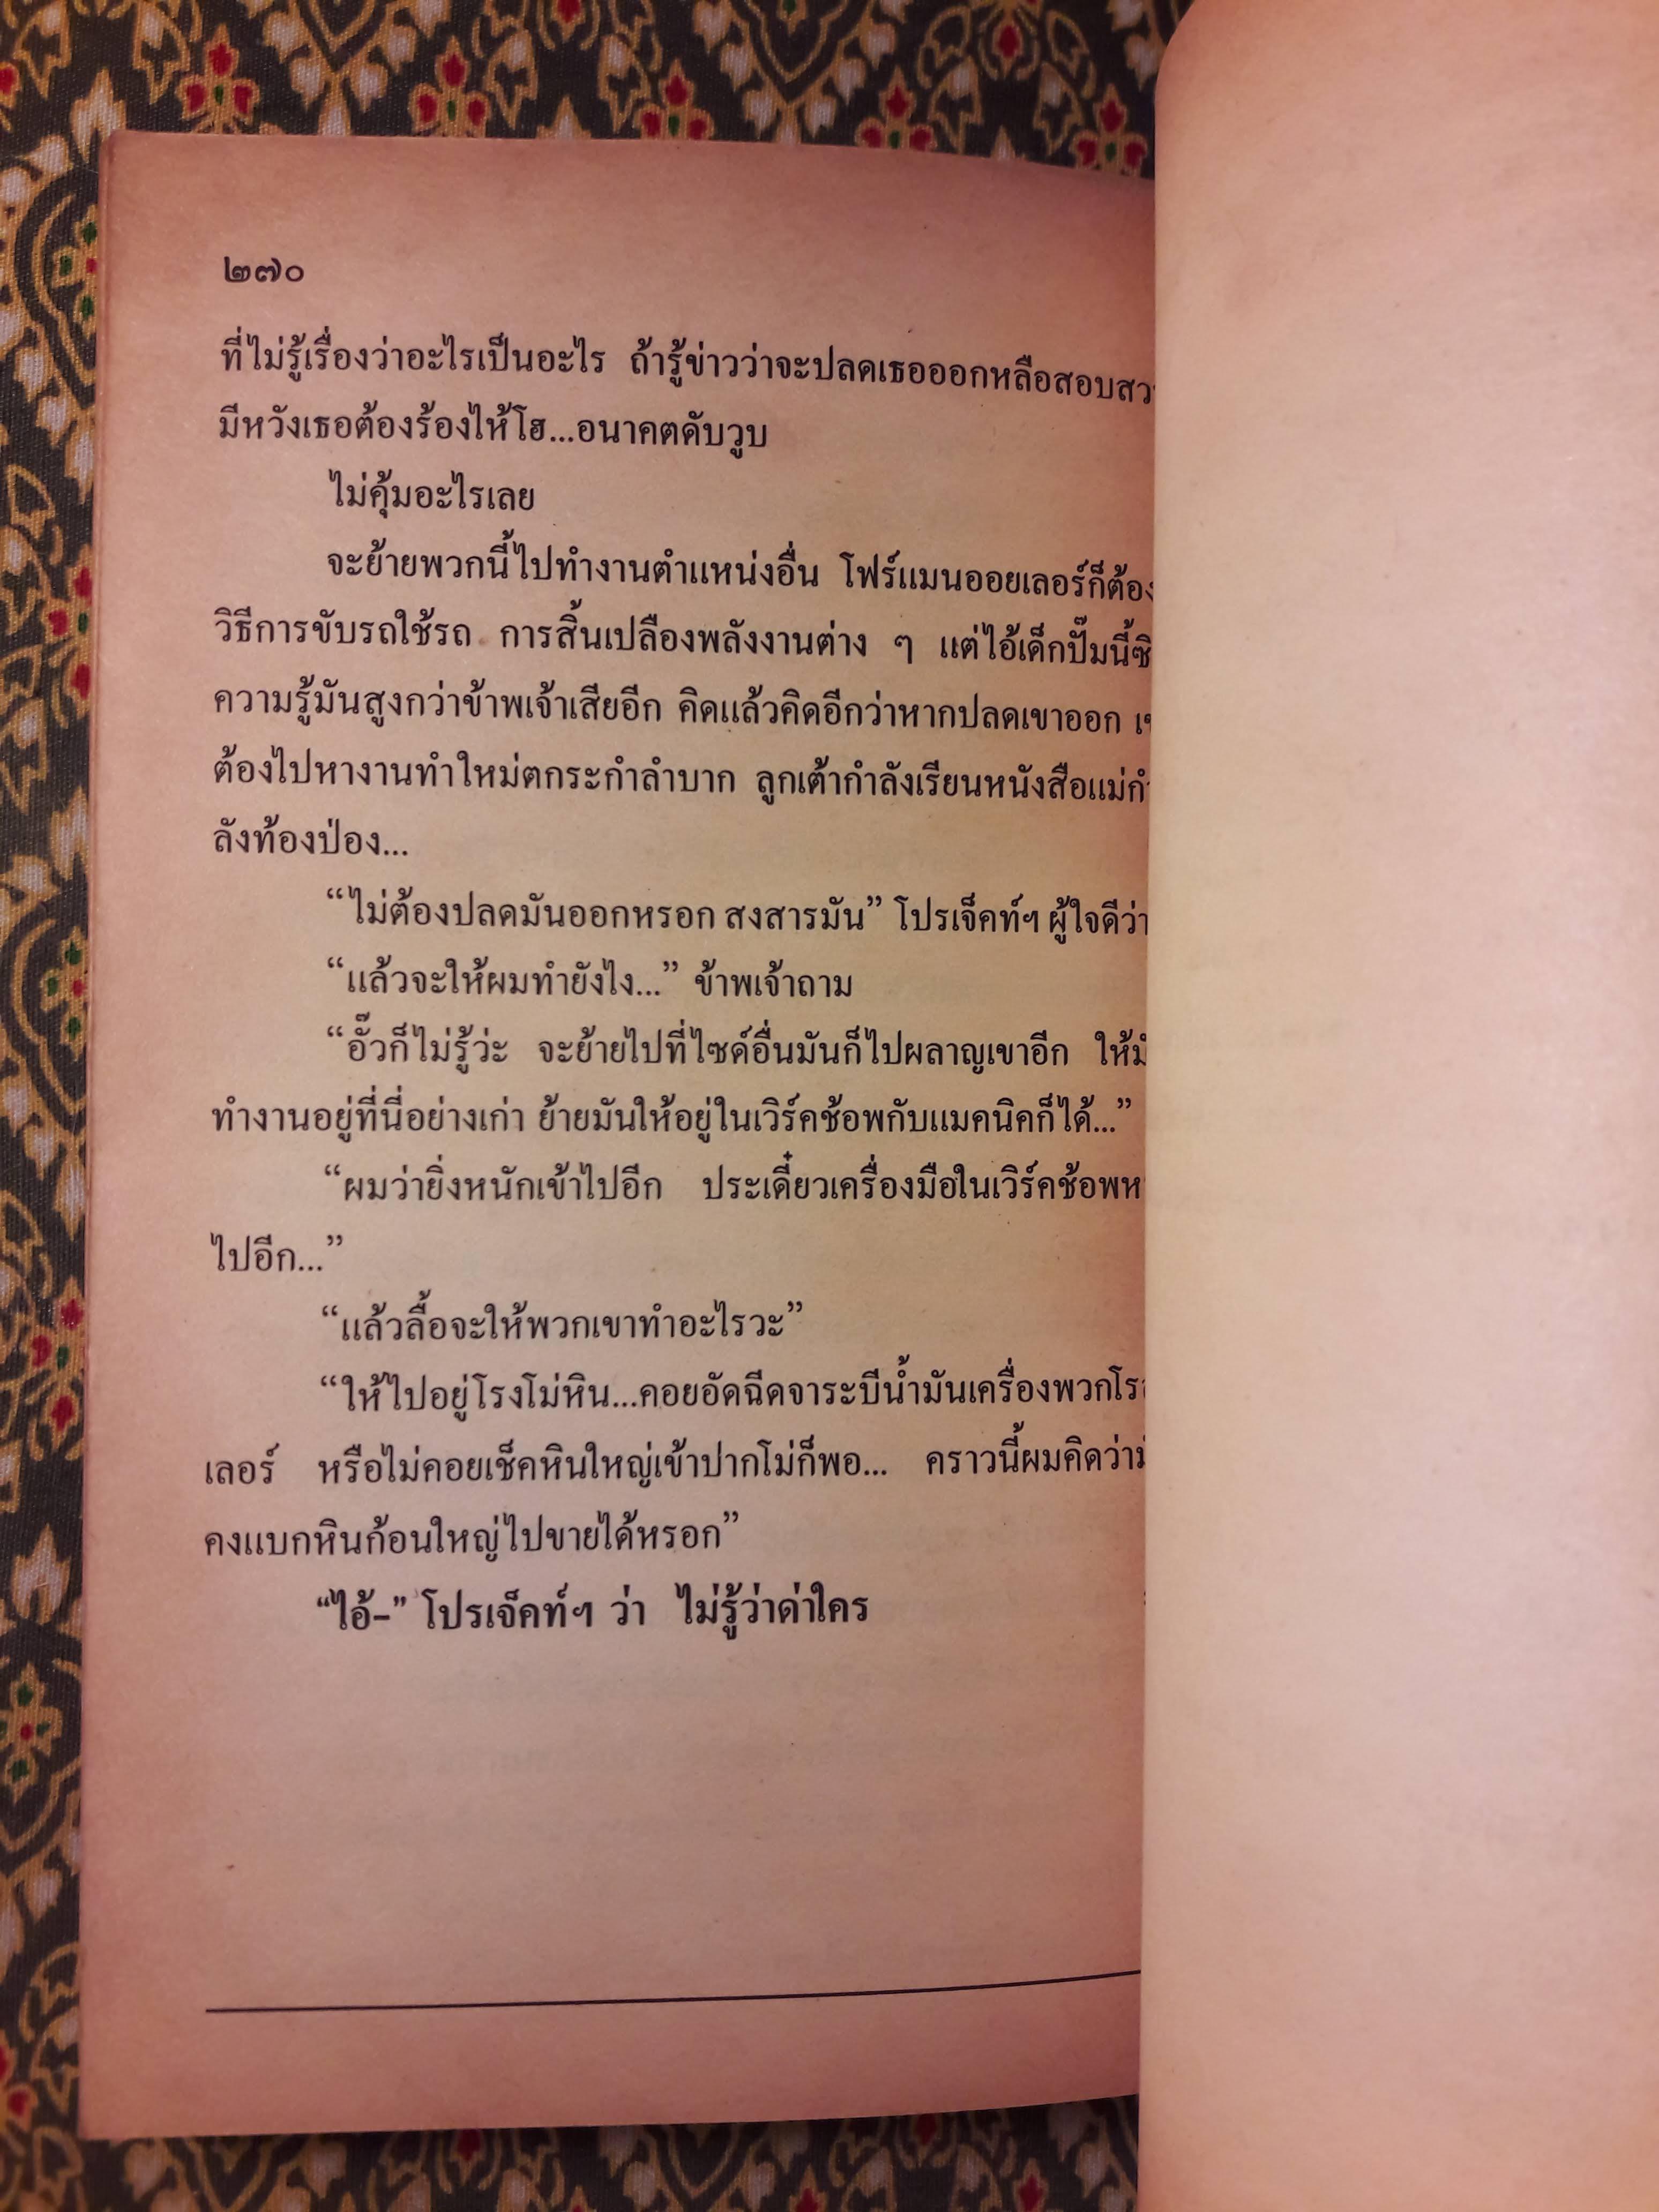 ๒๗๐
ที่ไม่รู้เรื่องว่าอะไรเป็นอะไร ถ้ารู้ข่าวว่าจะปลดเธอออกหลือสอบสว
มีหวังเธอต้องร้องไห้โฮ...อนาคตดับวูบ
ไม่คุ้มอะไรเลย
จะย้ายพวกนี้ไปทำงานตำแหน่งอื่น โฟร์แมนออยเลอร์ก็ต้อง
วิธีการขับรถใช้รถ การสิ้นเปลืองพลังงานต่าง ๆ แต่ไอ้เด็กปั๊มนี้ซิ
ความรู้มันสูงกว่าข้าพเจ้าเสียอีก คิดแล้วคิดอีกว่าหากปลดเขาออก
ต้องไปหางานทำใหม่ตกระกำลำบาก ลูกเต้ากำลังเรียนหนังสือแม่กำ
ลังท้องป่อง...
“ไม่ต้องปลดมันออกหรอก สงสารมัน” โปรเจ็คท์ฯ ผู้ใจดีว่า
“แล้วจะให้ผมทำยังไง...” ข้าพเจ้าถาม
“อั๊วก็ไม่รู้ว่ะ จะย้ายไปที่ไซด์อื่นมันก็ไปผลาญเขาอีก ให้มั
ทำงานอยู่ที่นี่อย่างเก่า ย้ายมันให้อยู่ในเวิร์คช้อพกับแมคนิคก็ได้...”
“ผมว่ายิ่งหนักเข้าไปอีก ประเดี๋ยวเครื่องมือในเวิร์คช้อพห
ไปอีก...”
“แล้วลื้อจะให้พวกเขาทำอะไรวะ”
“ให้ไปอยู่โรงโม่หิน...คอยอัดฉีดจาระบีน้ำมันเครื่องพวกโร
เลอร์ หรือไม่คอยเช็คหินใหญ่เข้าปากโม่ก็พอ... คราวนี้ผมคิดว่า
คงแบกหินก้อนใหญ่ไปขายได้หรอก”
“ไอ้-” โปรเจ็คท์ฯ ว่า ไม่รู้ว่าด่าใคร